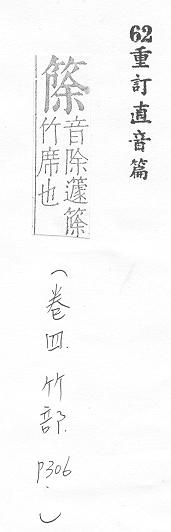 62重訂直音篇
篨
音除籧篨
竹席也
（卷四.竹部.p306.）